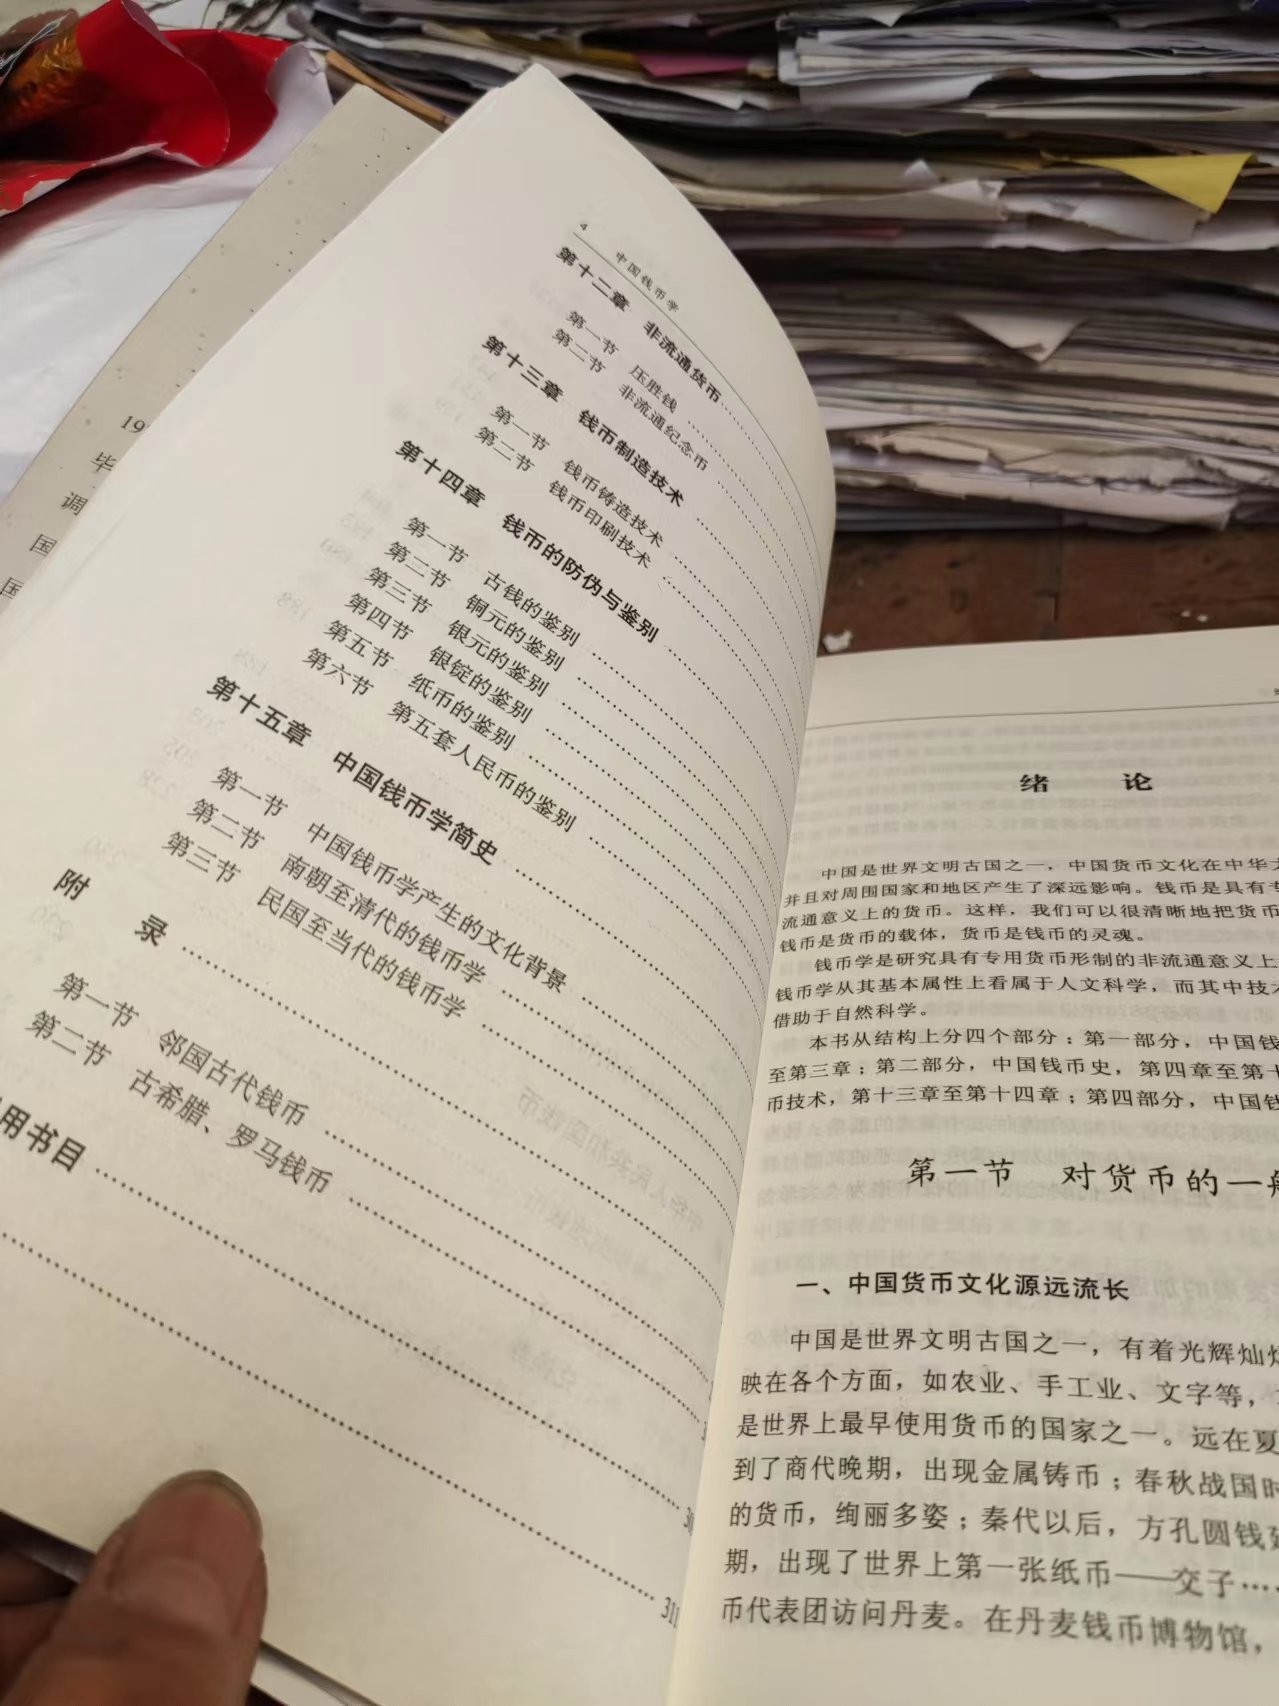 4 中国钱币学
第十二章 非流通货币
第一节 压胜钱
第二节 非流通纪念币
第十三章 钱币制造技术
第一节 钱币铸造技术
第二节 钱币印刷技术
第十四章 钱币的防伪与鉴别
第一节 古钱的鉴别
第二节 铜元的鉴别
第三节 银元的鉴别
第四节 银锭的鉴别
第五节 纸币的鉴别
第六节 第五套人民币的鉴别
第十五章 中国钱币学简史
第一节 中国钱币学产生的文化背景
第二节 南朝至清代的钱币学
第三节 民国至当代的钱币学
附 录
第一节 邻国古代钱币
第二节 古希腊、罗马钱币
用书目
311
19
毕
调
国
国
绪 论
中国是世界文明古国之一，中国货币文化在中华
并且对周围国家和地区产生了深远影响。钱币是具有专
流通意义上的货币。这样，我们可以很清晰地把货币
钱币是货币的载体，货币是钱币的灵魂。
钱币学是研究具有专用货币形制的非流通意义上
钱币学从其基本属性上看属于人文科学，而其中技术
借助于自然科学。
本书从结构上分四个部分：第一部分，中国钱
至第三章；第二部分，中国钱币史，第四章至第十
币技术，第十三章至第十四章；第四部分，中国钱
第一节 对货币的一般
一、中国货币文化源远流长
中国是世界文明古国之一，有着光辉灿烂
映在各个方面，如农业、手工业、文字等，
是世界上最早使用货币的国家之一。远在夏
到了商代晚期，出现金属铸币；春秋战国时
的货币，绚丽多姿；秦代以后，方孔圆钱
期，出现了世界上第一张纸币——交子……
币代表团访问丹麦。在丹麦钱币博物馆，